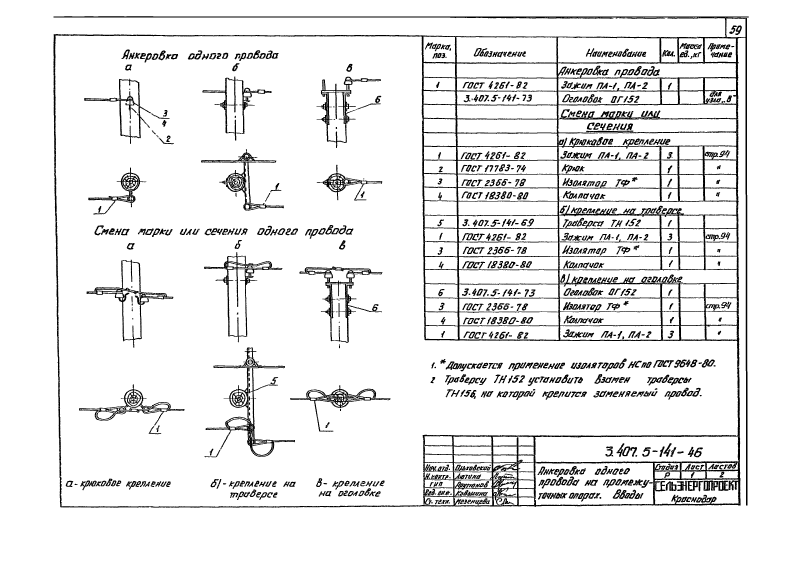 59
Анкеровка одного провода
а б в
3
4
2
6
1
1
1
Смена марки или сечения одного провода
а б в
6
5
1
1
1
а - крюковое крепление
б) - крепление на траверсе
в - крепление на оголовке
Марка, поз. Обозначение Наименование Кол. Масса ед., кг Примечание
Анкеровка провода
1 ГОСТ 4261-82 Зажим ПА-1, ПА-2 1
3.407.5-141-73 Оголовок ОГ152 для узла „В"
Смена марки или
сечения
а) Крюковое крепление
1 ГОСТ 4261-82 Зажим ПА-1, ПА-2 3 стр.94
2 ГОСТ 17783-74 Крюк 1 "
3 ГОСТ 2366-78 Изолятор ТФ* 1 "
4 ГОСТ 18380-80 Колпачок 1 "
б) крепление на траверсе
5 3.407.5-141-69 Траверса ТН152 1
1 ГОСТ 4261-82 Зажим ПА-1, ПА-2 3 стр.94
3 ГОСТ 2366-78 Изолятор ТФ* 1 "
4 ГОСТ 18380-80 Колпачок 1 "
в) крепление на оголовке
6 3.407.5-141-73 Оголовок ОГ152 1
3 ГОСТ 2366-78 Изолятор ТФ* 1 стр.94
4 ГОСТ 18380-80 Колпачок 1 "
1 ГОСТ 4261-82 Зажим ПА-1, ПА-2 3 "
1. * Допускается применение изоляторов НС по ГОСТ 9648-80.
2 Траверсу ТН152 установить взамен траверсы
ТН156, на которой крепится заменяемый провод.
3.407.5-141-46
Нач.отд.
Н.контр.
ГИП
Вед. инж.
Ст. техн.
Анкеровка одного
провода на промежу-
точных опорах. Вводы
Стадия Лист Листов
Р 1 2
СЕЛЬЭНЕРГОПРОЕКТ
Краснодар